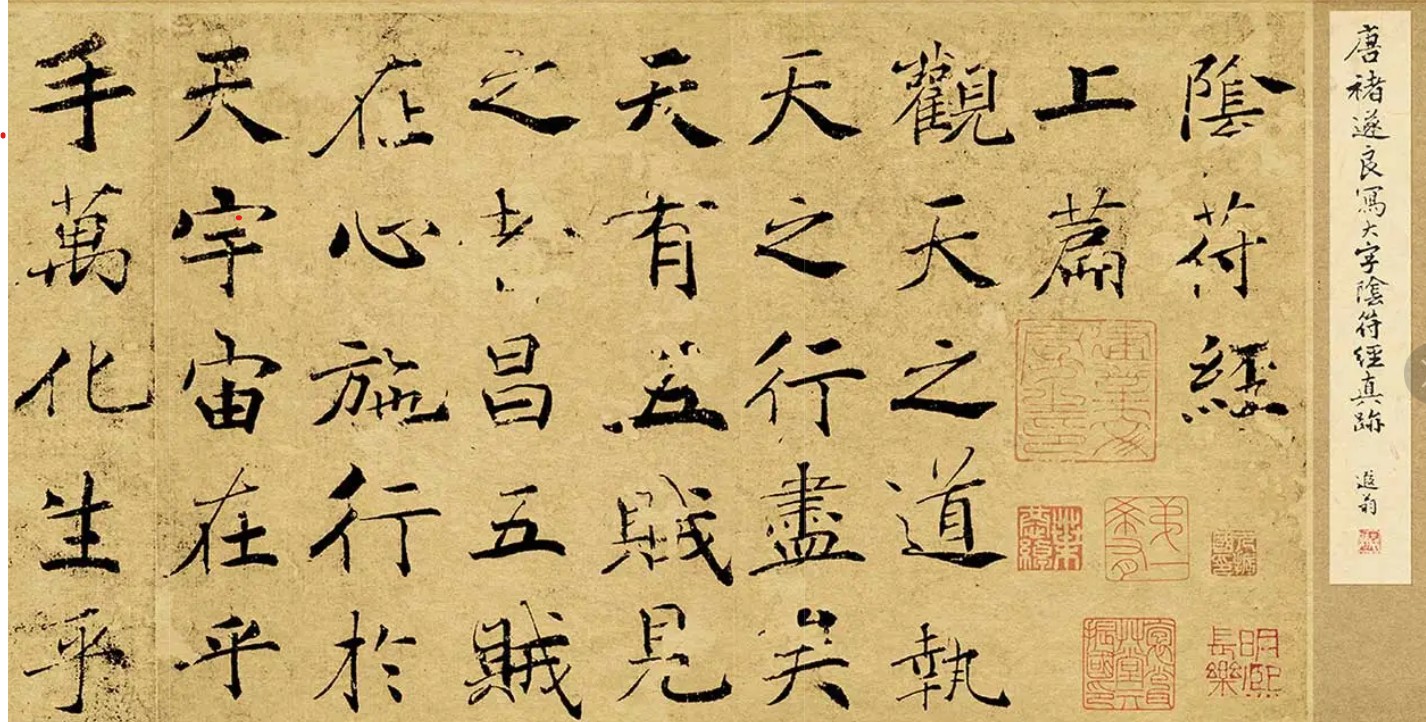 唐褚遂良寫大字陰符經真跡
遐翁
陰符經
上萹
觀天之道執
天之行盡矣
天有五賊見
之者昌五賊
在心施行於
天宇宙在乎
手萬化生乎